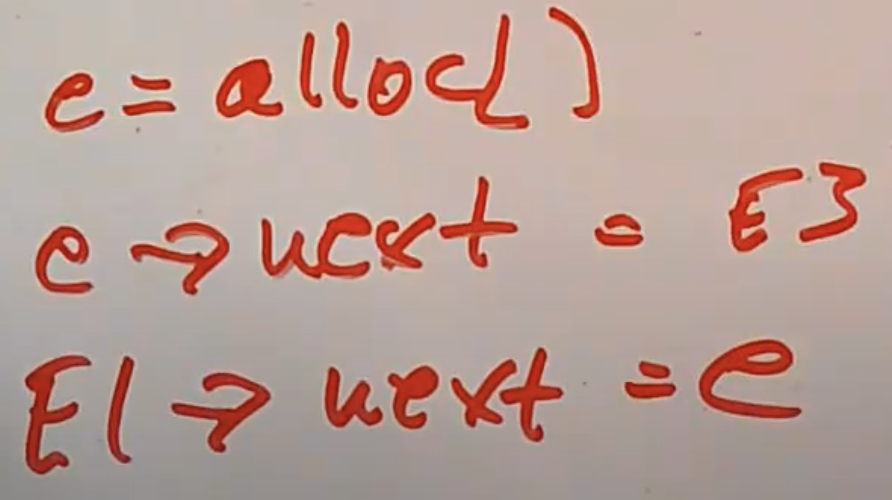 e = alloc()
e → next = E3
E1 → next = e